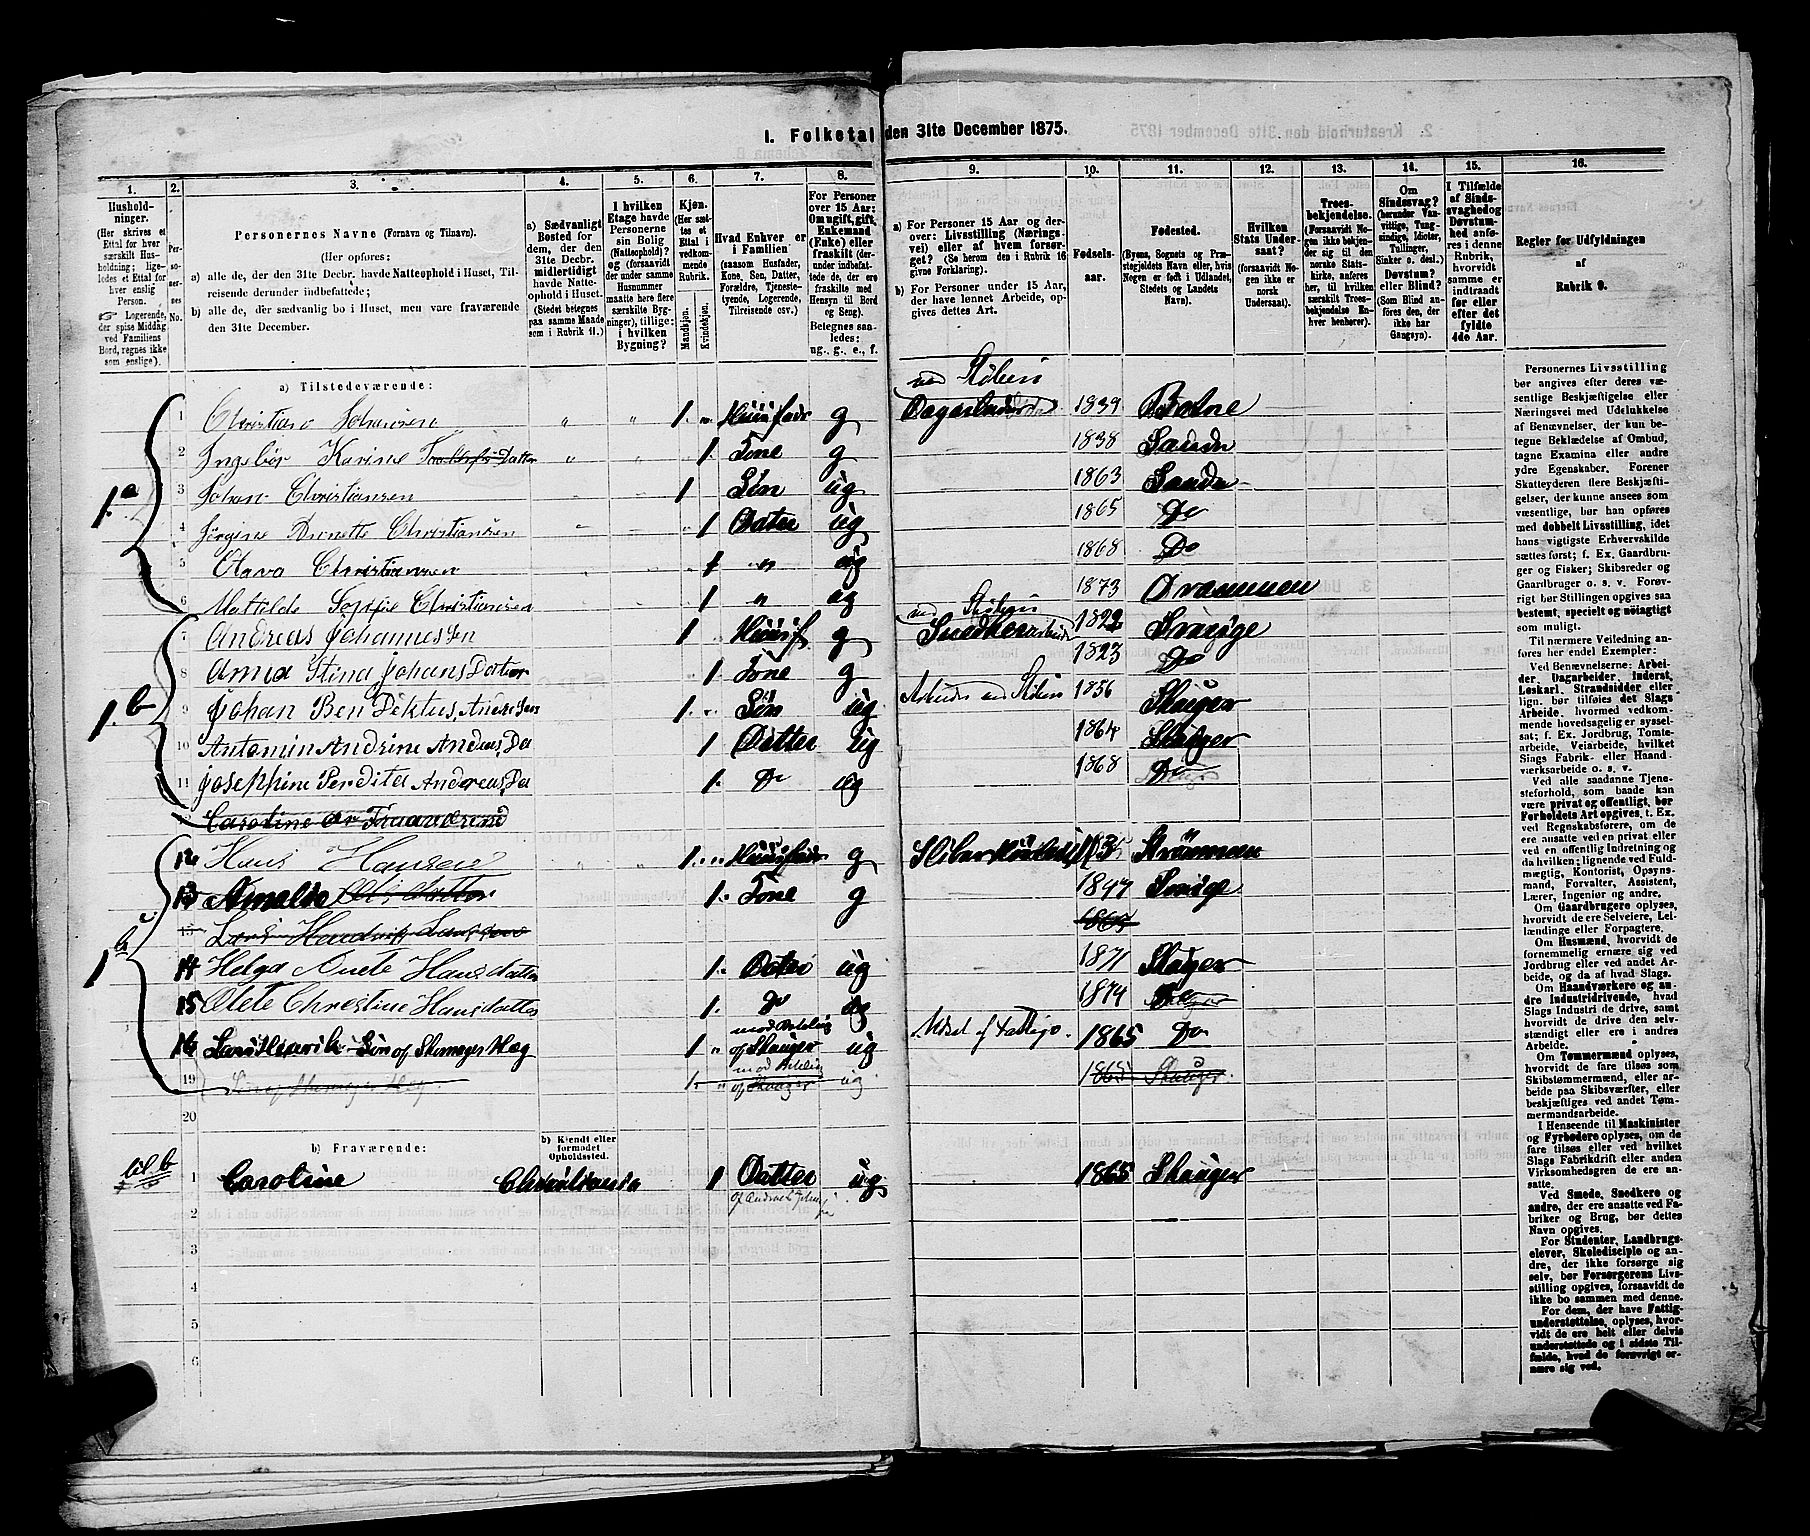 1. Folketal den 31te December 1875.
1. 2. 3. 4. 5. 6. 7. 8. 9. 10. 11. 12. 13. 14. 15. 16.
Husholdninger.
(Her skrives et Ettal for hver særskilt Husholdning; ligeledes et Ettal for hver enslig Person.
☞ Logerende, der spise Middag ved Familiens Bord, regnes ikke som enslige).
Personernes No.
Personernes Navne (Fornavn og Tilnavn).
(Her opføres:
a) alle de, der den 31te Decbr. havde Natteophold i Huset, Tilreisende derunder indbefattede;
b) alle de, der sædvanlig bo i Huset, men vare fraværende den 31te December.
a) Sædvanligt Bosted for dem, der den 31te Decbr. midlertidigt havde Natteophold i Huset. (Stedet betegnes paa samme Maade som i Rubrik 11.)
I hvilken Etage havde Personerne sin Bolig (Natteophold)? og (forsaavidt der under samme Husnummer maatte here flere særskilte Bygninger), tillige: i hvilken Bygning?
Kjøn. (Her sættes et Ettal i vedkommende Rubrik.)
Mandkjøn. Kvindekjøn.
Hvad Enhver er i Familien
(saasom Husfader, Kone, Søn, Datter, Forældre, Tjenestetyende, Logerende, Tilreisende osv.)
For Personer over 15 Aar: Om ugift, gift, Enkemand (Enke) eller fraskilt (derunder indbefattede de, der ere fraskilte med Hensyn til Bord og Seng).
Betegnes saaledes: ug., g., e., f.
a) For Personer 15 Aar og derover: Livsstilling (Næringsvei) eller af hvem forsørget? (Se herom den i Rubrik 16 givne Forklaring).
b) For Personer under 15 Aar, der have lønnet Arbeide, opgives dettes Art.
Fødselsaar.
Fødested.
(Byens, Sognets og Præstegjeldets Navn eller, hvis Negen er født i Udlandet, Stedets og Landets Navn).
Hvilken Stats Undersaat?
(forsaavidt Negen ikke er norsk Undersaat.)
Troesbekjendelse.
(Forsaavidt Negen ikke bekjender sig til den norske Statskirke, anføres her, til hvilken særskilt Troesbekjendelse Enhver henhører).
Om Sindssvag? (herunder Vanvittige, Tungsindige, Idioter, Tullinger, Sinker o. desl.) Døvstum? eller Blind?
(Som Blind anføres den, der ikke har Gangsyn).
I Tilfælde af Sindssvaghed og Døvstumhed anføres i denne Rubrik, hvorvidt samme er indtraadt før eller efter det fyldte 4de Aar.
Regler for Udfyldningen
af
Rubrik 9.
a) Tilstedeværende:
ved Sliberi
1 Christian Johansen " " 1 " Huusfadr g Dagarbeider 1839 Botne
2 Ingebør Karine " " 1 Kone g 1838 Sande
3 Johan Christiansen 1 Søn ug 1863 Sande
4 Jørgine Annette Christiansen " 1 Datter ug 1865 Do
5 Christiansen 1 " ug 1868 Do
6 Matilde Sofie Christiansen 1 " ug 1873 Drammen
1.a
ved Sliberi
7 Andreas Johannessen 1 Huusf g Snedkerarbeide 1822 Sverige
8 Anna Stina Johans Datter 1 Kone g 1823 Do
9 Johan Ben Diktus, Andresen 1 " Søn ug Arbeider ved Sliberi 1856 Skauger
10 Antomin Andrine Andreas, Da 1 Datter ug 1864 Skauger
11 Josephine Pendita Andereas, Da 1 Do ug 1868 Do
1.b
12 Hans Hansen " " 1 " Huusfadr g Strømmen
13 Amalia 1 Kone g 1847 Sverige
15 Lars
14 Helga Anete Hansdatter 1 Datter ug 1871 Skauger
15 Olete Christine Hansdatter 1 Do ug 1874
16 Lars Hinrik Søn of Skomager Hæg 1 " of Skauger ug 1865 Do
19 Søn of Skomager Hæg 1 " of Skauger ug 1865 Skauger
20
b) Fraværende:
b) Kjendt eller formodet Opholdssted.
til b
1 Caroline Christiania 1 Datter ug 1865 Skauger
2
3
4
5
6
Personernes Livsstilling bør angives efter deres væsentlige Beskjæftigelse eller Næringsvei med Udelukkelse af Benævnelser, der kun betegne Beklædelse af Ombud, tagne Examina eller andre ydre Egenskaber. Forener Skatteyderen flere Beskjæftigelser, der kunne ansees som væsentlige, bør han opføres med dobbelt Livsstilling, idet hans vigtigste Erhvervskilde sættes først; f. Ex. Gaardbruger og Fisker; Skibsreder og Gaardbruger o. s. v. Forøvrigt bør Stillingen opgives saa bestemt, specielt og nøiagtigt som muligt.
Til nærmere Veiledning anføres her endel Exempler:
Ved Benævnelserne: Arbeider, Dagarbeider, Inderst, Løskarl, Strandsidder eller lign. bør tilføies det Slags Arbeide, hvormed vedkommende hovedsagelig er sysselsat; f. Ex. Jordbrug, Tomtearbeide, Veiarbeide, hvilket Slags Fabrik- eller Haandværksarbeide o. s. v.
Ved alle saadanne Tjenesteforhold, som baade kan være privat og offentligt, bør Forholdets Art opgives, f. Ex. ved Regnskabsførere, om de ere ansatte ved en privat eller ved en offentlig Indretning og da hvilken; lignende ved Fuldmægtig, Kontorist, Opsynsmand, Forvalter, Assistent, Lærer, Ingeniør og andre.
Om Gaardbrugere oplyses, hvorvidt de ere Selveiere, Leilændinge eller Forpagtere.
Om Husmænd, hvorvidt de fornemmelig ernære sig ved Jordbrug eller ved andet Arbeide, og da af hvad Slags.
Om Haandværkere og andre Industridrivende, hvad Slags Industri de drive, samt hvorvidt de drive den selvstændigt eller ere i andres Arbeide.
Om Tømmermænd oplyses, hvorvidt de fare tilsøs som Skibstømmermænd, eller arbeide paa Skibsværfter, eller beskjæftiges ved andet Tømmermandsarbeide.
I Henseende til Maskinister og Fyrbødere oplyses, om de fare tilsøs eller ved hvilket Slags Fabrikdrift eller anden Virksomhedsgren de ere ansatte.
Ved Smede, Snedkere og andre, der ere ansatte ved Fabriker og Brug, bør dettes Navn opgives.
For Studenter, Landbrugselever, Skoledisciple og andre, der ikke forsørge sig selv, bør Forsørgerens Livsstilling opgives, forsaavidt de ikke bo sammen med denne.
For dem, der have Fattigunderstøttelse, oplyses, hvorvidt de ere helt eller delvis understøttede og i sidste Tilfælde, hvad de forøvrigt ernære sig ved.